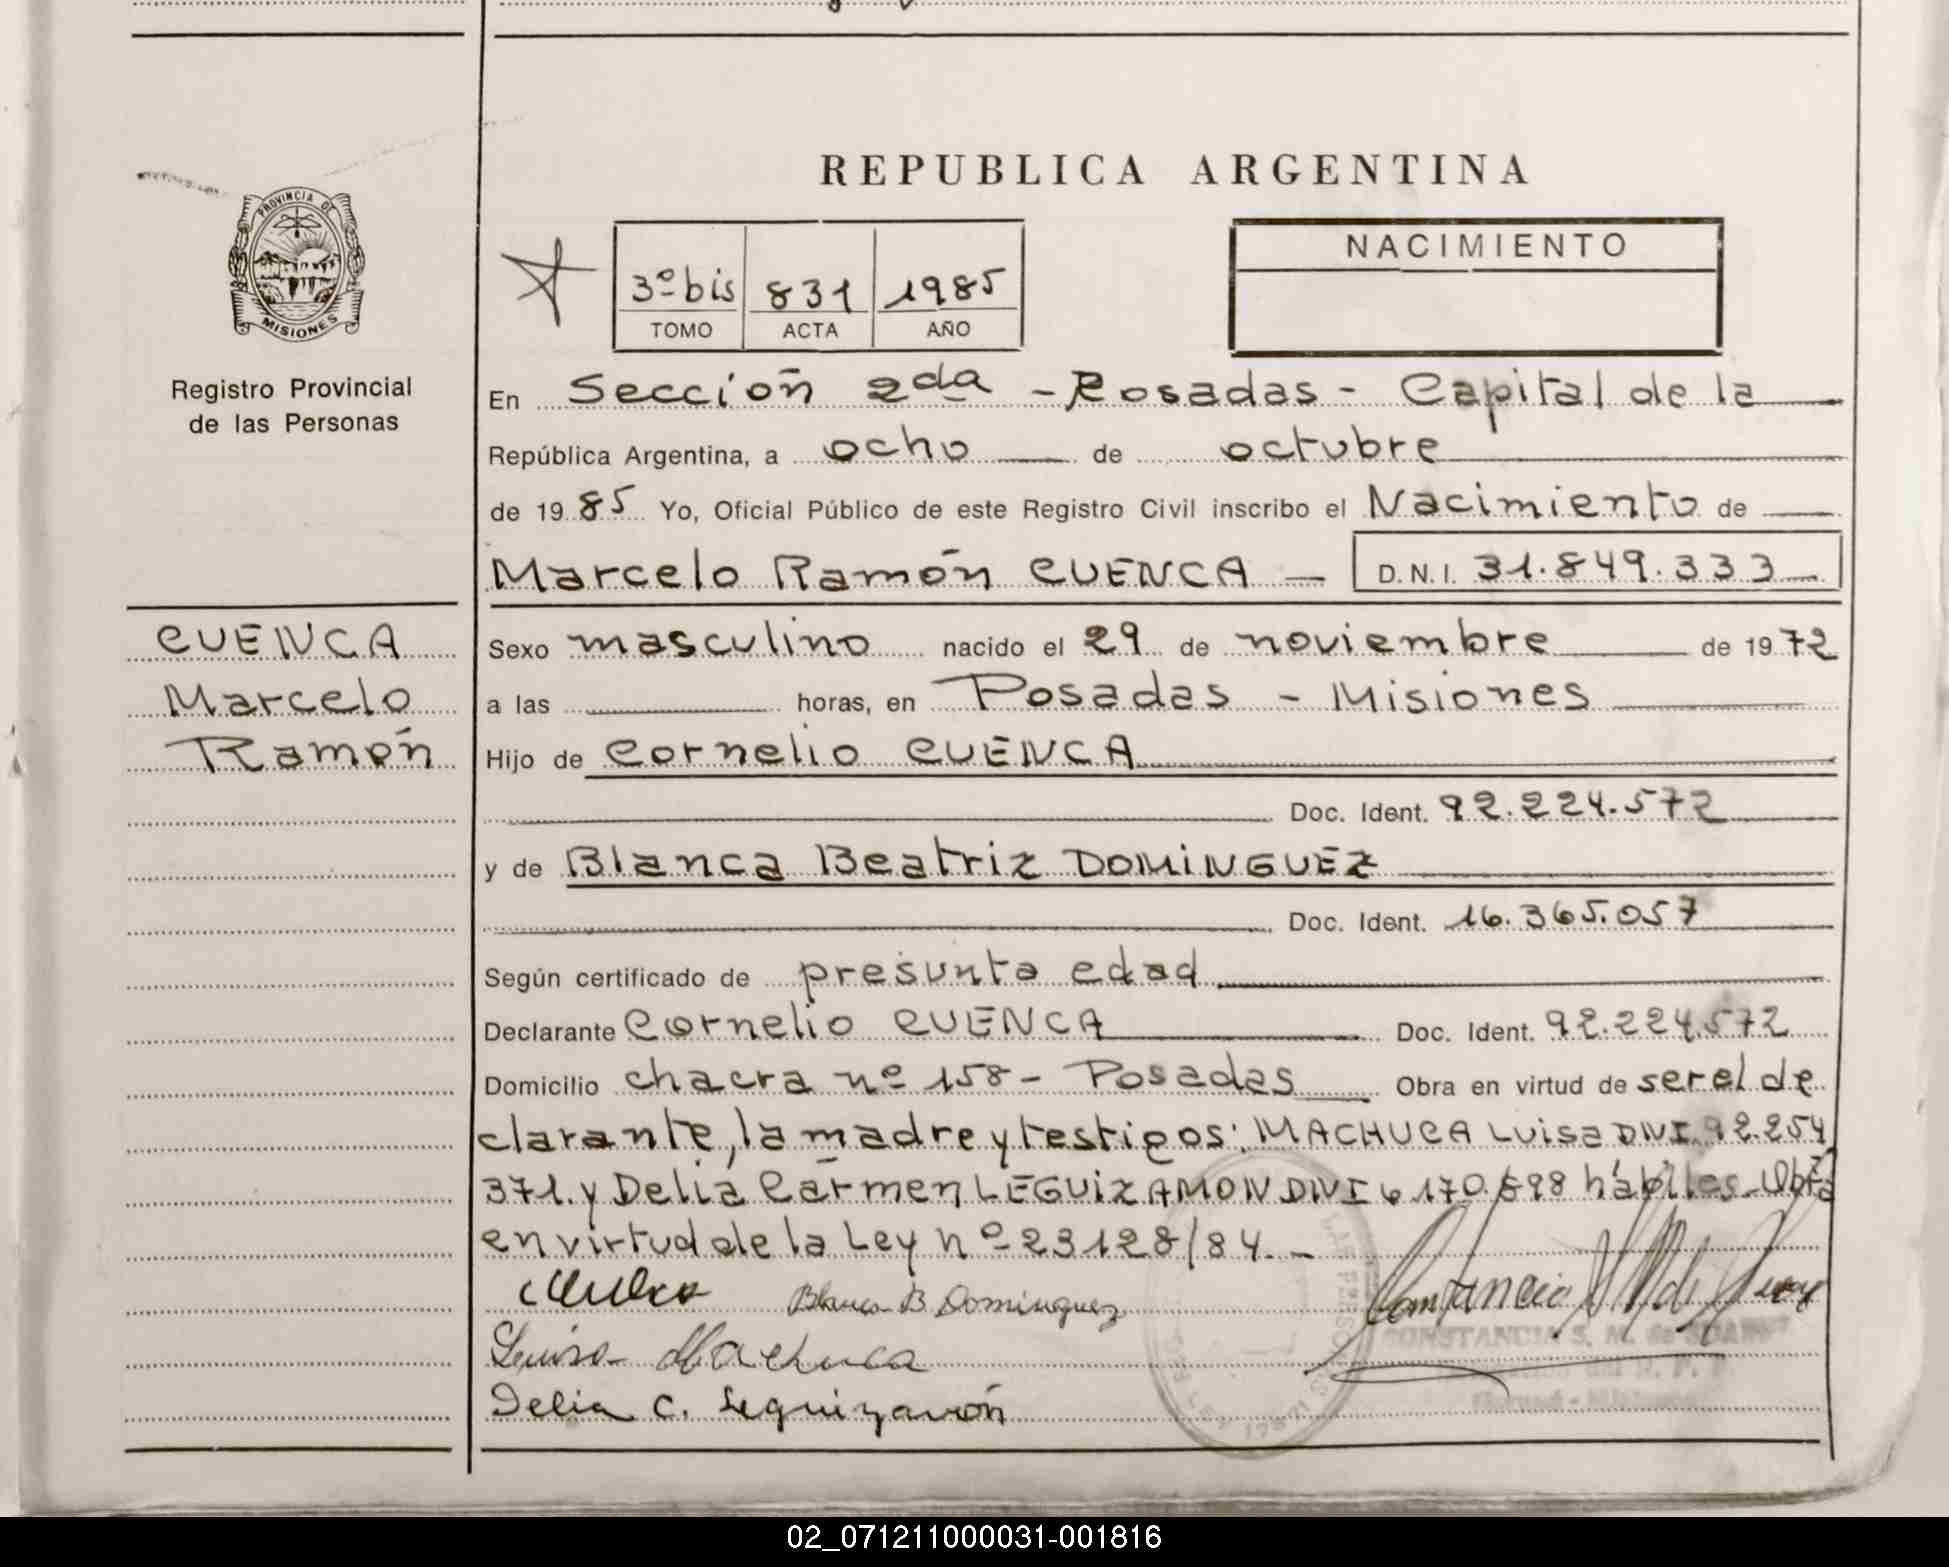 REPUBLICA ARGENTINA
PROVINCIA DE
MISIONES
Registro Provincial
de las Personas
3º bis 831 1985
TOMO ACTA AÑO
NACIMIENTO
En Sección 2da - Posadas - Capital de la
República Argentina, a ocho de octubre
de 1985 Yo, Oficial Público de este Registro Civil inscribo el Nacimiento de
Marcelo Ramón CUENCA D.N.I. 31.849.333
CUENCA
Marcelo
Ramón
Sexo masculino nacido el 29 de noviembre de 1972
a las horas, en Posadas - Misiones
Hijo de Cornelio CUENCA
Doc. Ident. 92.224.572
y de Blanca Beatriz DOMINGUEZ
Doc. Ident. 16.365.057
Según certificado de presunta edad
Declarante Cornelio CUENCA Doc. Ident. 92.224.572
Domicilio chacra nº 158 - Posadas Obra en virtud de ser el de
clarante, la madre y testigos: MACHUCA Luisa DNI 92.254
371. y Delia Carmen LEGUIZAMON DNI 6 170 898 hábiles - Obra
en virtud de la Ley nº 23128/84. -
Blanca B Dominguez
Luisa Machuca
Delia C. Leguizamón
CONSTANCIA S. M. de
02_071211000031-001816